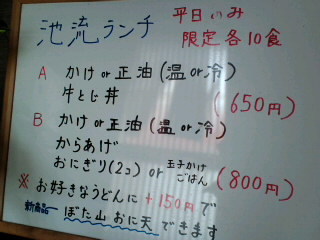 池流ランチ 平日のみ
限定各10食
A かけ or 正油(温 or 冷)
牛とじ丼 (650円)
B かけ or 正油(温 or 冷)
からあげ
おにぎり(2コ) or 玉子かけごはん (800円)
※お好きなうどんに +150円で
新商品 ぼた山 おに天 できます